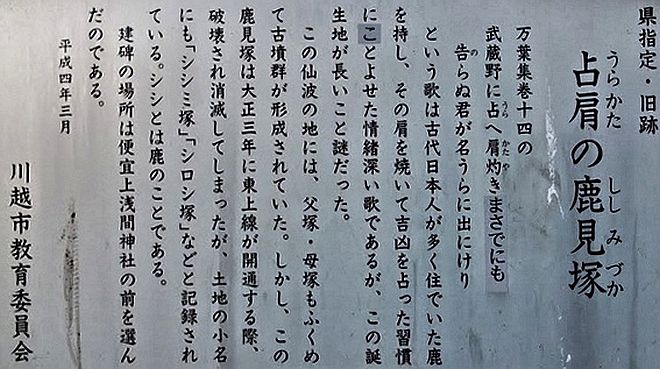 県指定・旧跡
うらかた ししみづか
占肩の鹿見塚
万葉集巻十四の
うら かたや
武蔵野に占へ肩灼きまさでにも
の
告らぬ君が名うらに出にけり
という歌は古代日本人が多く住でいた鹿
を持し、その肩を焼いて吉凶を占った習慣
にことよせた情緒深い歌であるが、この誕
生地が長いこと謎だった。
この仙波の地には、父塚・母塚もふくめ
て古墳群が形成されていた。しかし、この
鹿見塚は大正三年に東上線が開通する際、
破壊され消滅してしまったが、土地の小名
にも「シシミ塚」「シロシ塚」などと記録され
ている。シシとは鹿のことである。
建碑の場所は便宜上浅間神社の前を選ん
だのである。
平成四年三月
川越市教育委員会